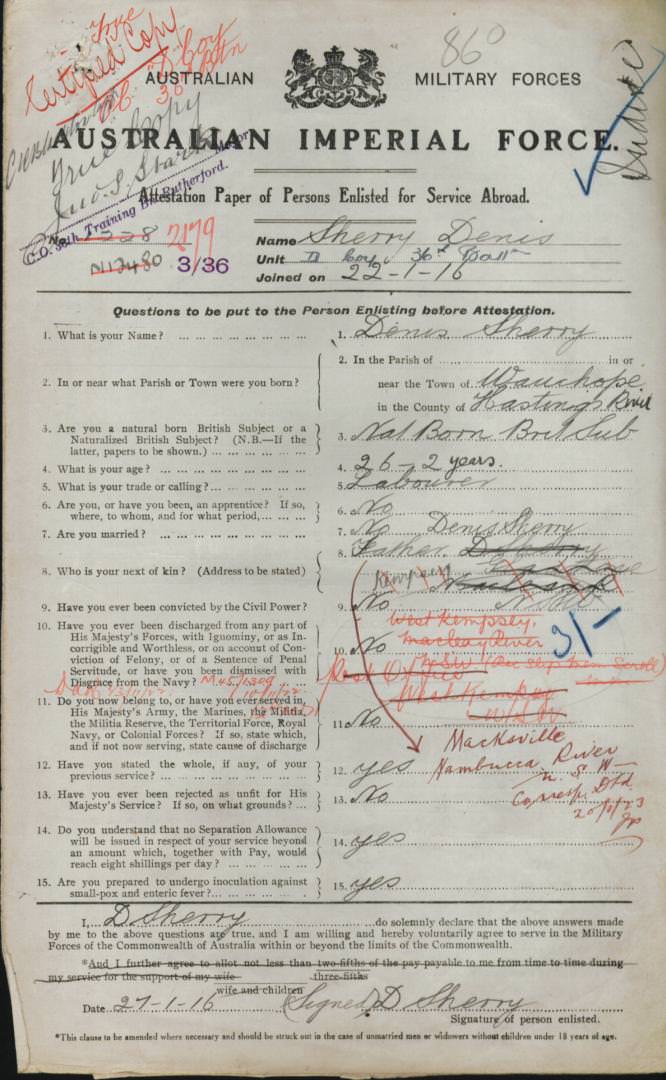 True
Certified Copy
"D" Coy
36 Battn
860
AUSTRALIAN MILITARY FORCES
AUSTRALIAN IMPERIAL FORCE.
True Copy
Jno. S. Stark
Major
C.O. 36th Training Bn. Rutherford.
Attestation Paper of Persons Enlisted for Service Abroad.
No. 1228 2179
N13480 3/36
Name Sherry Denis
Unit D Coy 36th Batt
Joined on 22-1-16
Questions to be put to the Person Enlisting before Attestation.
1. What is your Name? ... 1. Denis Sherry
2. In or near what Parish or Town were you born? 2. In the Parish of ... in or
near the Town of Wauchope
in the County of Hastings River
3. Are you a natural born British Subject or a
Naturalized British Subject? (N.B.—If the
latter, papers to be shown.) ... 3. Nat Born Brit Sub
4. What is your age? ... 4. 26-2 years.
5. What is your trade or calling? ... 5. Labourer
6. Are you, or have you been, an apprentice? If so,
where, to whom, and for what period, ... 6. No
7. Are you married? ... 7. No Denis Sherry
8. Who is your next of kin? (Address to be stated) 8. Father D Sherry
Kempsey
N.S.W
9. Have you ever been convicted by the Civil Power? 9. No
West Kempsey,
Macleay River
NSW
3/-
10. Have you ever been discharged from any part of
His Majesty's Forces, with Ignominy, or as In-
corrigible and Worthless, or on account of Con-
viction of Felony, or of a Sentence of Penal
Servitude, or have you been dismissed with
Disgrace from the Navy? 10. No
Post Office
West Kempsey
N.S.W
11. Do you now belong to, or have you ever served in,
His Majesty's Army, the Marines, the Militia,
the Militia Reserve, the Territorial Force, Royal
Navy, or Colonial Forces? If so, state which,
and if not now serving, state cause of discharge 11. No
Macksville
Nambucca River
N.S.W—
12. Have you stated the whole, if any, of your
previous service? ... 12. yes
13. Have you ever been rejected as unfit for His
Majesty's Service? If so, on what grounds? ... 13. No
14. Do you understand that no Separation Allowance
will be issued in respect of your service beyond
an amount which, together with Pay, would
reach eight shillings per day? ... 14. yes
15. Are you prepared to undergo inoculation against
small-pox and enteric fever? ... 15. yes
I, D Sherry do solemnly declare that the above answers made
by me to the above questions are true, and I am willing and hereby voluntarily agree to serve in the Military
Forces of the Commonwealth of Australia within or beyond the limits of the Commonwealth.
*And I further agree to allot not less than two-fifths of the pay payable to me from time to time during
my service for the support of my wife three-fifths
wife and children
Date 27-1-16 (Signed) D Sherry
Signature of person enlisted.
*This clause to be amended where necessary and should be struck out in the case of unmarried men or widowers without children under 18 years of age.